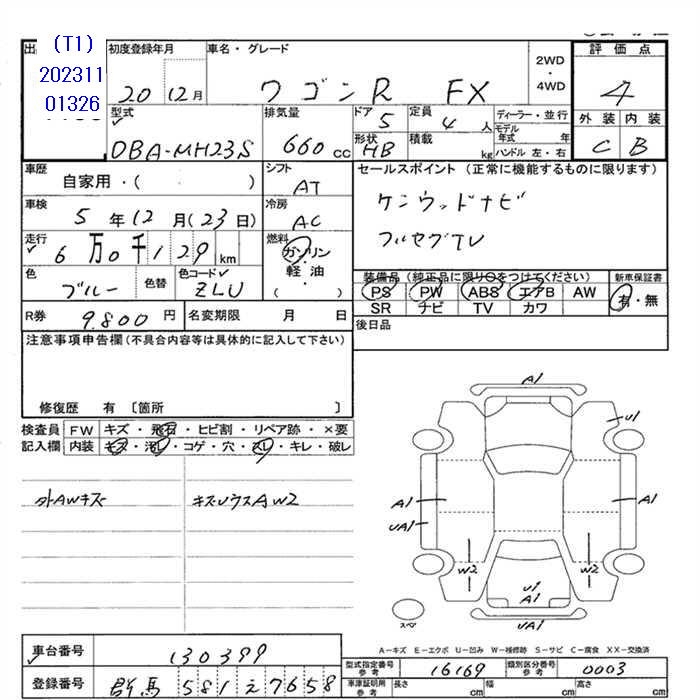 (T1)
202311
01326
出
初度登録年月
20 12月
車名・グレード
ワゴンR FX
2WD
・
4WD
評価点
4
外装 内装
C B
型式
DBA-MH23S
排気量
660 cc
ドア 5
形状 HB
定員 4 人
積載 kg
ディーラー・並行
モデル年式 年
ハンドル 左・右
車歴
自家用・( )
シフト
AT
車検
5年12月(23日)
冷房
AC
走行
6万0千129 km
燃料
ガソリン
・
軽油
( )
色
ブルー
色替
色コード
ZLU
R券 9.800 円
名変期限 月 日
セールスポイント (正常に機能するものに限ります)
ケンウッドナビ
フルセグTV
装備品(純正品に限り○をつけてください)
PS PW ABS エアB AW
SR ナビ TV カワ
新車保証書
有・無
後日品
注意事項申告欄(不具合内容等は具体的に記入して下さい)
修復歴 有 〔箇所 〕
検査員記入欄
FW キズ・飛石・ヒビ割・リペア跡・×要
内装 キズ・汚レ・コゲ・穴・スレ・キレ・破レ
外AWキズ
キズUウスAW2
A1
U1
A1
UA1
A1
W2
W2
U1
A1
UA1
スペア
A－キズ E－エクボ U－凹み W－補修跡 S－サビ C－腐食 XX－交換済
車台番号 130399
登録番号 群馬 581 え 7658
型式指定番号
参考
16169
類別区分番号
参考
0003
車庫証明用
参考
長さ cm 幅 cm 高さ cm